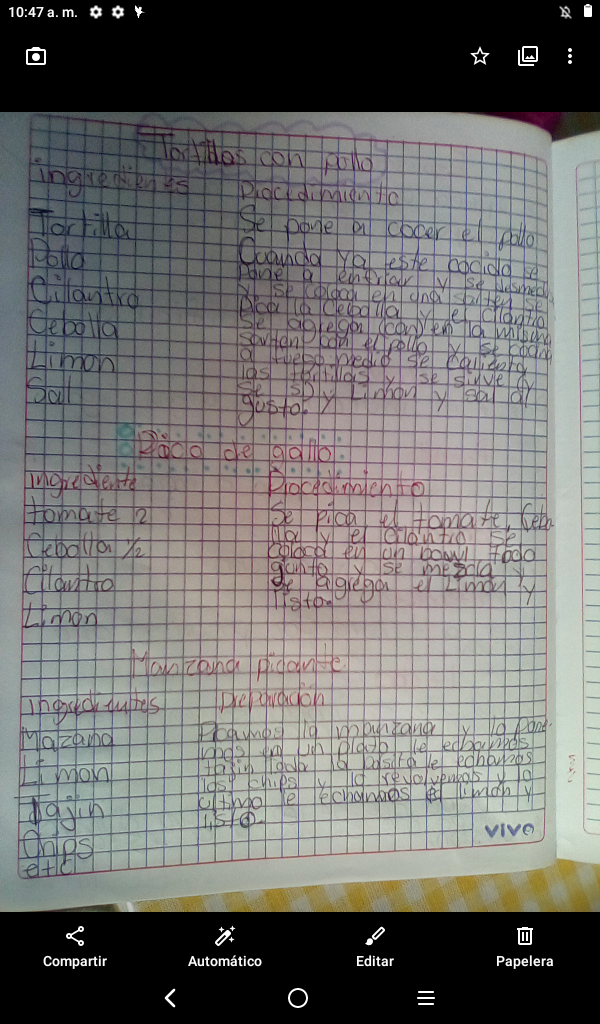 10:47 a. m.
Tortillas con pollo
ingredienes
Procedimiento
Tortilla
Pollo
Cilantro
Cebolla
Limon
Sal
Se pone a cocer el pollo
Cuando ya este cocido se
pone a enfriar y se desmed
y se coloca en una sarten se
pica la cebolla y el cilantro
Se agregan en la misma
sarten con el pollo y se cocina
a fuego medio se calienta
las tortillas y se sirve y
Se Limon y sal al
gusto. y
Pico de gallo
ingrediente
Procedimiento
tomate 2
Cebolla 1/2
Cilantro
Limon
Se pica el tomate, Cebo
lla y el cilantro se
coloca en un bowl todo
gunto y se mezcla y
se agrega el Limon y
listo.
Manzana picante
ingredientes
preparación
Mazana
Limon
Tajin
Chips
etc
Picamos la manzana y la pone-
mos en un plato le echamos
tajin toda la basita le echamos
los chips y lo revolvemos y lo
ultimo le echamos el limon y
listo.
vivo
Compartir
Automático
Editar
Papelera